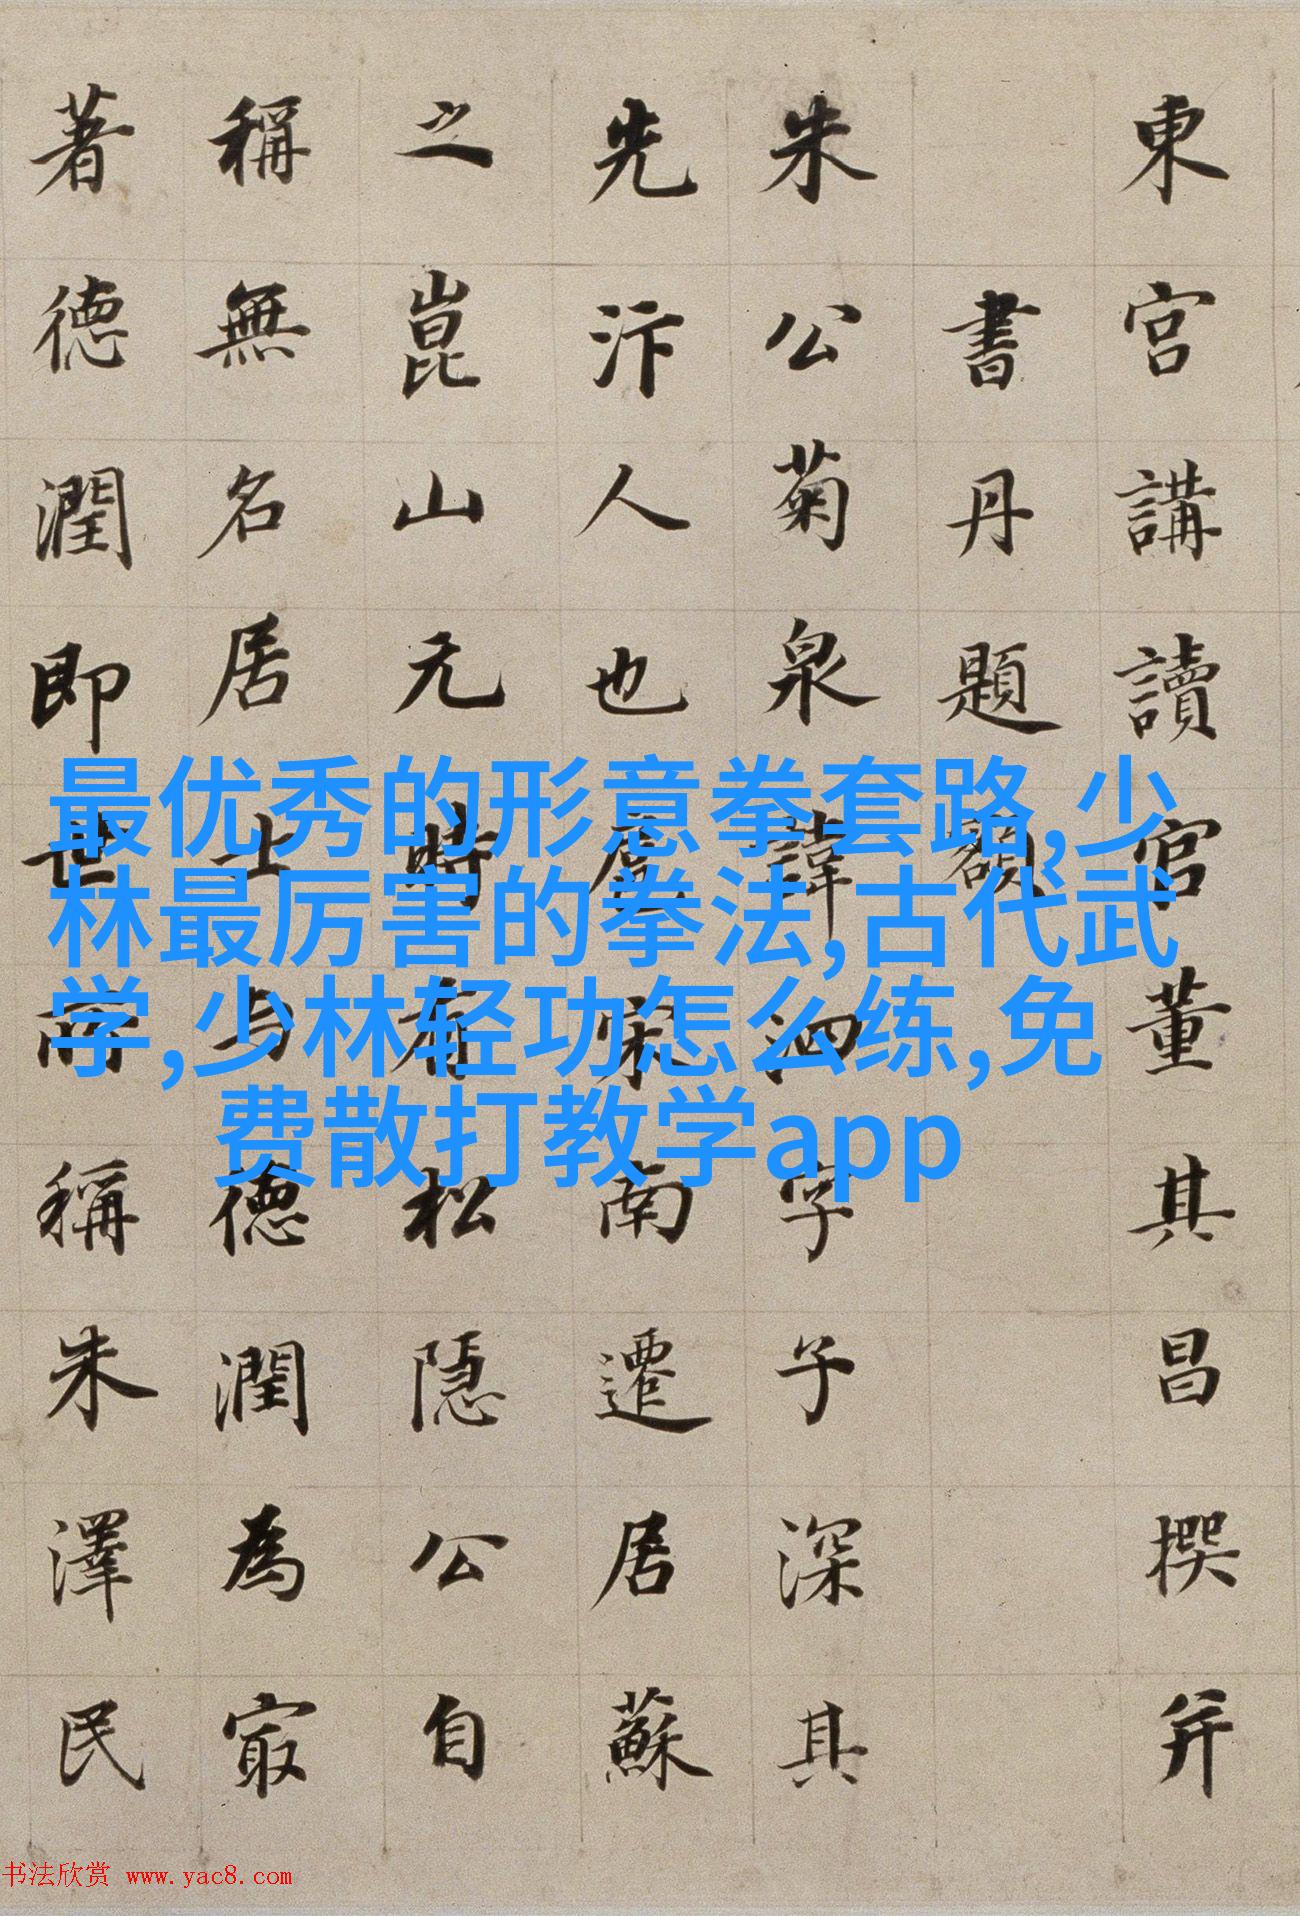 東宮講讀官董其昌撰并
書丹題額
朱公菊泉諱泗字子深其
先汴人也扈宋南遷居蘇
之崑山元時有松隱公自
稱無名居士与德潤為冣
著德潤即世所稱朱澤民
最优秀的形意拳套路,少
林最厉害的拳法,古代武
学,少林轻功怎么练,免
费散打教学app
书法欣赏 www.yac8.com